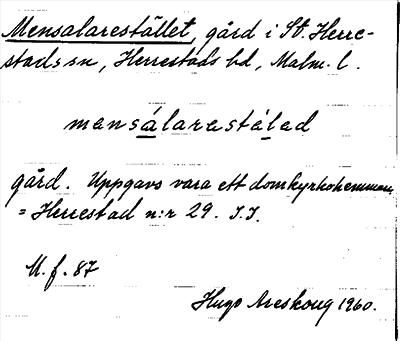 Mensalarestället, gård i St. Herre-
stads sn, Herrestads hd, Malm. l.
mensálarastálad
gård. Uppgavs vara ett domkyrkohemman
= Herrestad n:r 29. I.I.
M. f. 87
Hugo Areskoug 1960.